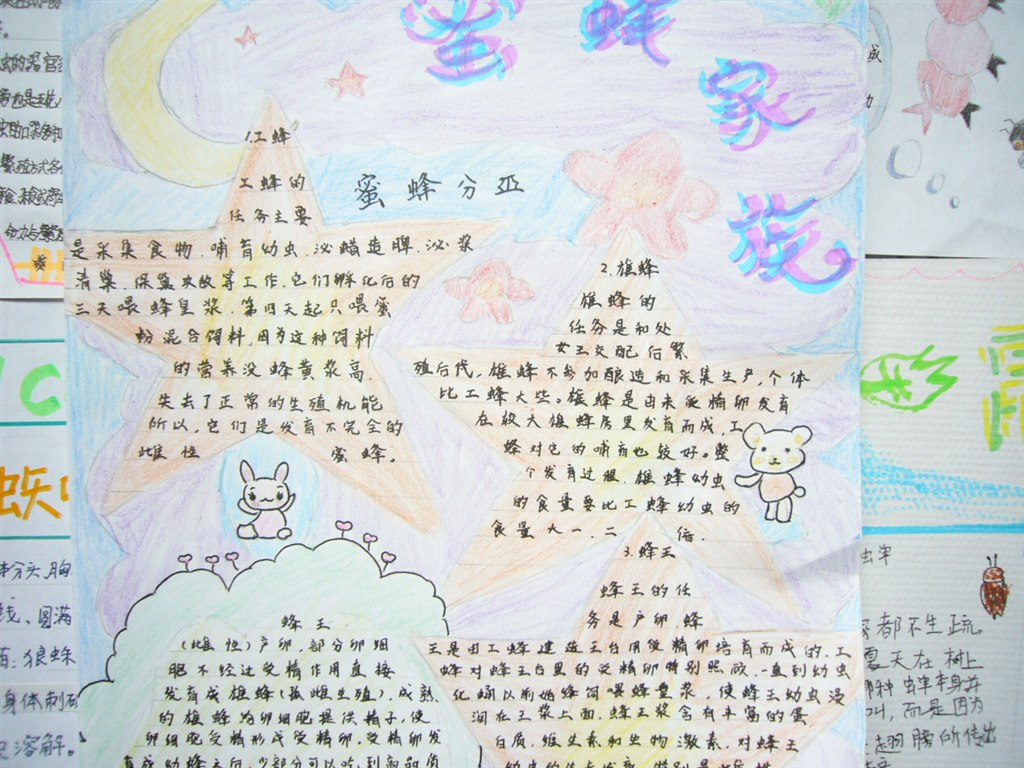 蜜蜂家族
蜜蜂分工
1.工蜂
工蜂的
任务主要
是采集食物、哺育幼虫、泌蜡造脾、泌浆
清巢、保巢攻敌等工作。它们孵化后的
三天喂蜂皇浆,第四天起只喂蜜
粉混合饲料,因为这种饲料
的营养没蜂黄浆高,
失去了正常的生殖机能
所以,它们是发育不完全的
雌性 蜜蜂。
2.雄蜂
雄蜂的
任务是和处
女王交配后繁
殖后代,雄蜂不参加酿造和采集生产,个体
比工蜂大些。雄蜂是由未受精卵发育
在较大雄蜂房里发育而成,工
蜂对它的哺育也较好。整
个发育过程,雄蜂幼虫
的食量要比工蜂幼虫的
食量大一、二 倍。
3.蜂王
蜂王的任
务是产卵,蜂
王是由工蜂建造王台用受精卵培育而成的,工
蜂对蜂王台里的受精卵特别照顾,一直到幼虫
化蛹以前始终饲喂蜂皇浆,使蜂王幼虫浸
润在王浆上面,蜂王浆含有丰富的蛋
白质、维生素和生物激素,对蜂王
蜂王
(雌性)产卵,部分卵细
胞不经过受精作用直接
发育成雄蜂(孤雌生殖),成熟
的雄蜂为卵细胞提供精子,使
卵细胞受精形成受精卵,受精卵发
身体刺
溶解。
都不生疏。
夏天在树上
叫,而是因为
翅膀所传出